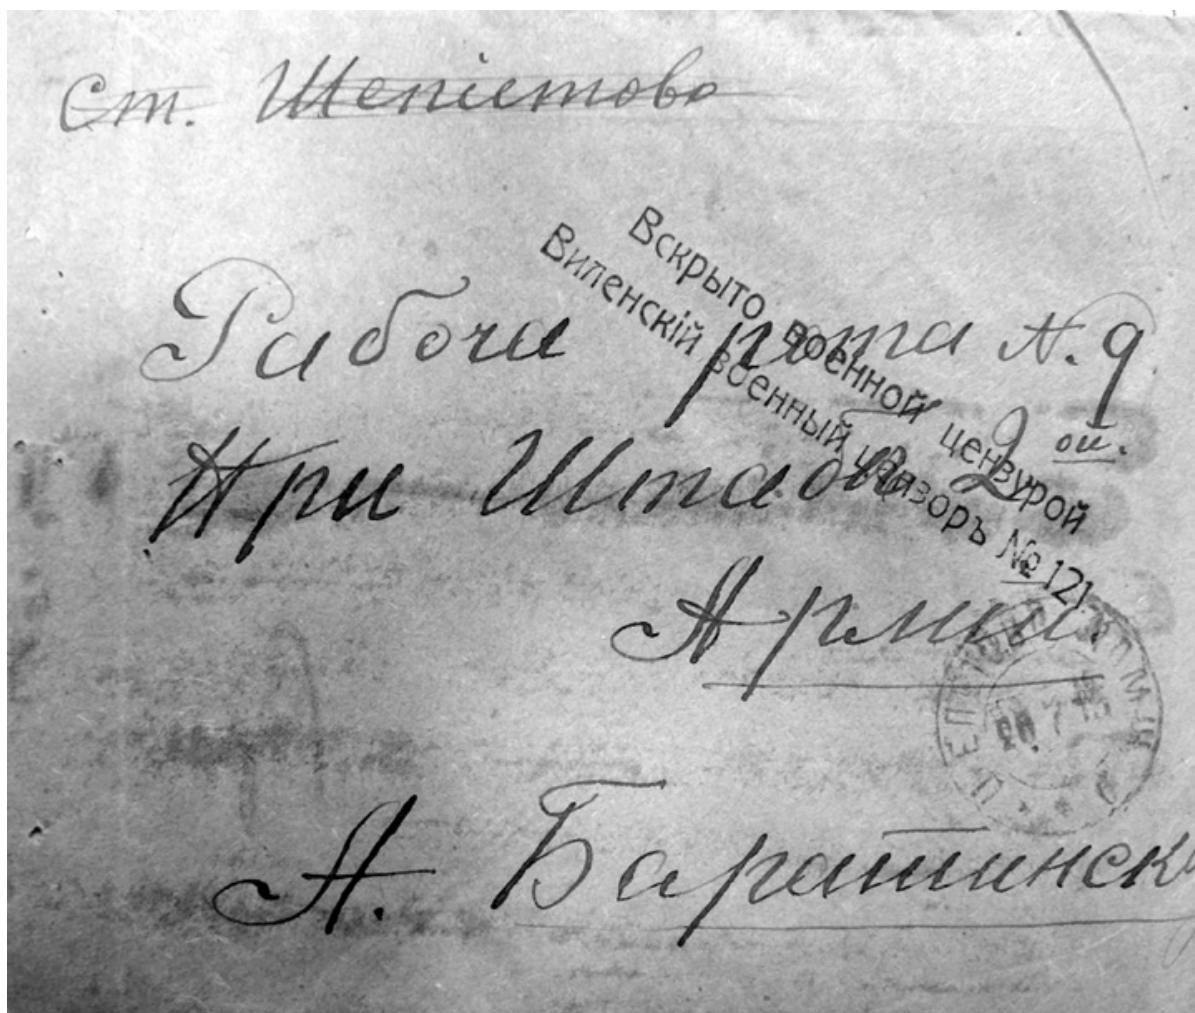 Ст. Шепіетово
Вскрыто военной цензурой
Виленскій военный цензоръ № 121
Рабоча рота N. 9
При Штабѣ 2 ой.
Арміи.
20.7.15
А. Баратинск